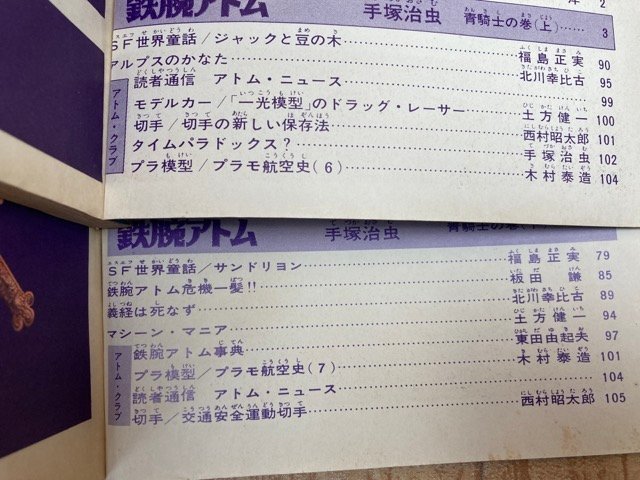 2
鉄腕アトム 手塚治虫 青騎士の巻(上) 3
SF世界童話/ジャックと豆の木 福島正実 90
アルプスのかなた 北川幸比古 95
アトム・クラブ
読者通信 アトム・ニュース 99
モデルカー/「一光模型」のドラッグ・レーサー 土方健一 100
切手/切手の新しい保存法 西村昭太郎 101
タイムパラドックス? 手塚治虫 102
プラ模型/プラモ航空史(6) 木村泰造 104
鉄腕アトム 手塚治虫 青騎士の巻
SF世界童話/サンドリヨン 福島正実 79
鉄腕アトム危機一髪!! 板田 謙 85
義経は死なず 北川幸比古 89
マシーン・マニア 土方健一 94
アトム・クラブ
鉄腕アトム事典 東田由起夫 97
プラ模型/プラモ航空史(7) 木村泰造 101
読者通信 アトム・ニュース 104
切手/交通安全運動切手 西村昭太郎 105